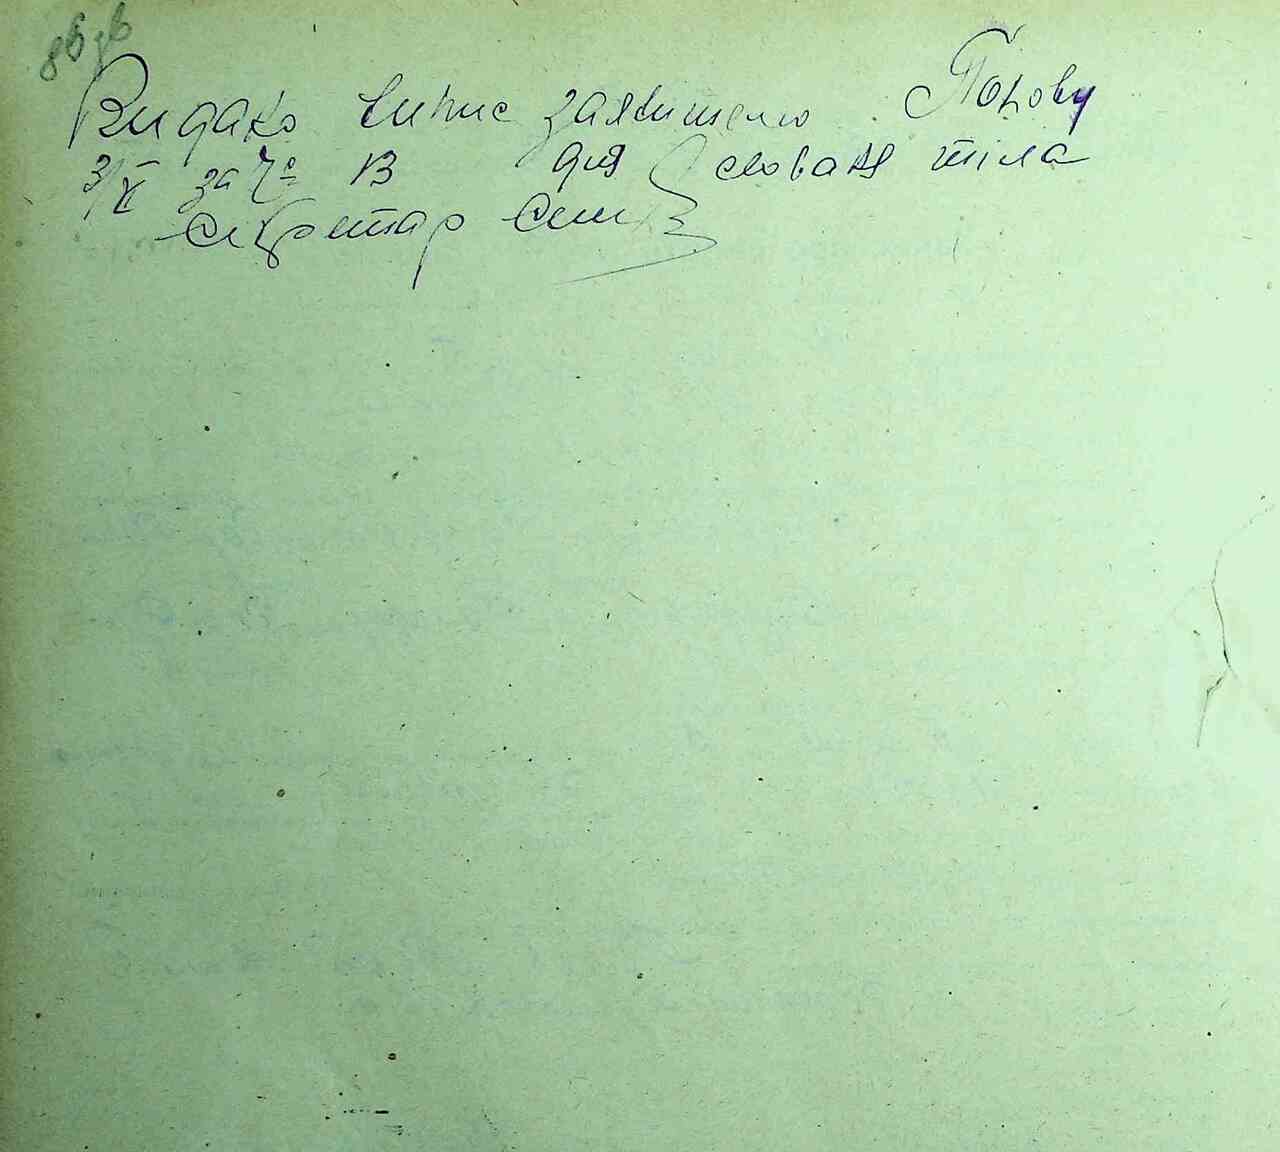 86 зв
Видано випис заявителю Попову
3/X за № В для сховання тіла
Секретар